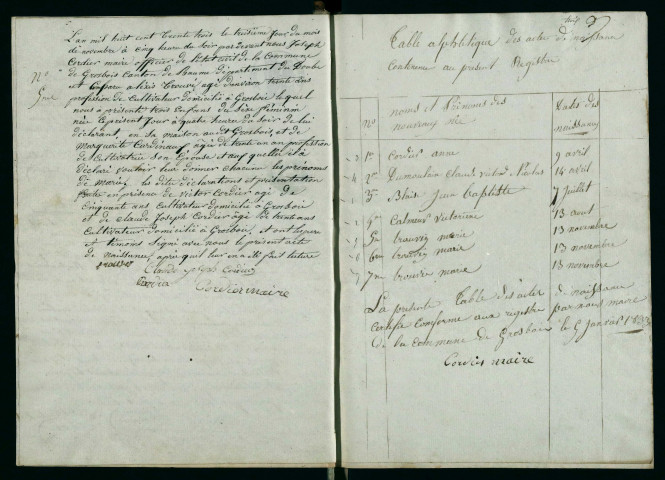 L'an mil huit cent trente trois le treizième jour du mois
de novembre à cinq heures du soir par devant nous Joseph
Cordier maire officier de l'état civil de la Commune
N°
de Grosbois Canton de Baume département du Doubs
5me
est comparu alexis trouvé agé d'environ trente ans
profession de Cultivateur domicilié à Grosbois lequel
nous a présenté trois Enfans du Sexe féminin
née le présent jour à quatre heures du soir de lui
déclarant, en sa maison audit Grosbois, et de
Marguerite agé de trente un an profession
de Cultivatrice Son Epouse et auxquelles il a
déclaré vouloir leur donner chacune les prénoms
de Marie les dites déclarations et présentation
faite en présence de victor Cordier agé de
Cinquante ans Cultivateur domicilié à Grosbois
et de Claude Joseph Cordier agé de trente ans
Cultivateur domicilié à Grosbois, et ont le pere
et témoins Signé avec nous le présent acte
de naissance, après qu'il leur en a été fait lecture
trouvé
Claude joseph Cordier
Cordier Cordier maire
Table alphabétique des actes de naissance
contenue au présent Registre
N° noms et Prénoms des nouveaux née Dates des naissances
1er Cordier anne 9 avril
2e Dumoulin claude victor Nicolas 14 avril
3e Blaise Jean baptiste 7 juillet
4me Calmeus victorine 13 aout
5me trouvée marie 13 novembre
6me trouvée marie 13 novembre
7me trouvée marie 13 novembre
La présente Table des actes de naissance
certifié conforme aux registre par nous maire
de la commune de Grosbois le 9 Janvier 1833
Cordier maire